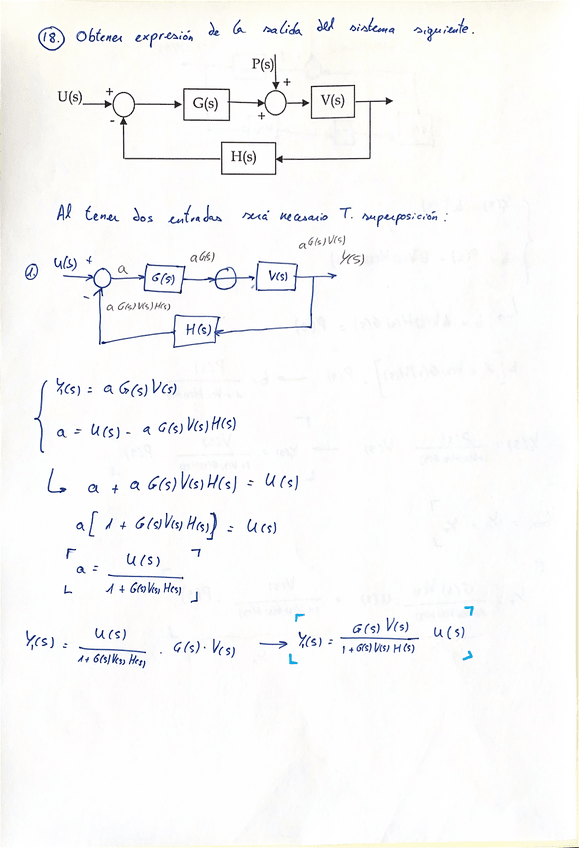 18. Obtener expresión de la salida del sistema siguiente.
P(s)
+
U(s) + G(s) + V(s)
-
H(s)
Al tener dos entradas será necesario T. superposición:
a G(s) V(s)
① U(s) + a G(s) a G(s) V(s) Y₁(s)
- a G(s) V(s) H(s)
H(s)
Y₁(s) = a G(s) V(s)
a = U(s) - a G(s) V(s) H(s)
↳ a + a G(s) V(s) H(s) = U(s)
a [1 + G(s) V(s) H(s)] = U(s)
a = U(s) / 1 + G(s) V(s) H(s)
Y₁(s) = U(s) / 1 + G(s) V(s) H(s) · G(s) · V(s) → Y₁(s) = G(s) V(s) / 1 + G(s) V(s) H(s) U(s)